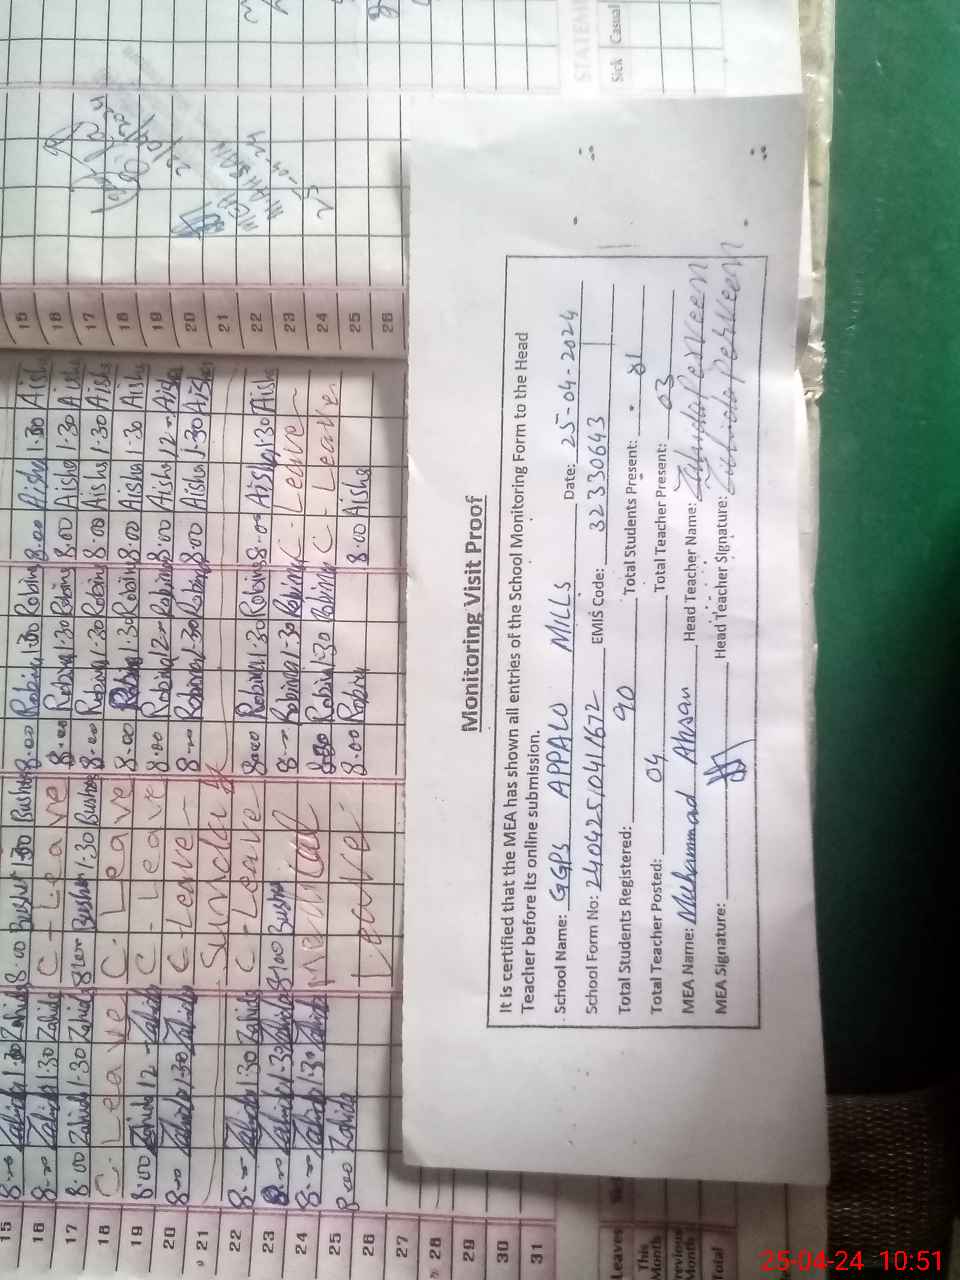 Monitoring Visit Proof
It is certified that the MEA has shown all entries of the School Monitoring Form to the Head
Teacher before its online submission.
School Name: GGPS APPALO MILLS Date: 25-04-2024
School Form No: 240425/041672 EMIS Code: 32330643
Total Students Registered: 90 Total Students Present: 81
Total Teacher Posted: 04 Total Teacher Present: 03
MEA Name: Muhammad Ahsan Head Teacher Name: Zahida Perveen
MEA Signature: Head Teacher Signature: Zahida Perveen
15 8.00 Zahida 1.30 Zahida 8.00 Bushra 1.30 Bushra 8.00 Robina 1.30 Robina 8.00 Aisha 1.30 Aisha 15
16 8.00 Zahida 1.30 Zahida C-Leave 8.00 Robina 1.30 Robina 8.00 Aisha 1.30 Aisha 16
17 8.00 Zahida 1.30 Zahida 8.00 Bushra 1.30 Bushra 8.00 Robina 1.30 Robina 8.00 Aisha 1.30 Aisha 17
18 C. Leave C. Leave 8.00 Robina 1.30 Robina 8.00 Aisha 1.30 Aisha 18
19 8.00 Zahida 12 Zahida C. Leave 8.00 Robina 12 Robina 8.00 Aisha 12 Aisha 19
20 8.00 Zahida 1.30 Zahida C-Leave 8.00 Robina 1.30 Robina 8.00 Aisha 1.30 Aisha 20
21 Sunday 21
22 8.00 Zahida 1.30 Zahida C-Leave 8.00 Robina 1.30 Robina 8.00 Aisha 1.30 Aisha 22
23 8.00 Zahida 1.30 Zahida 8.00 Bushra 8.00 Robina 1.30 Robina C-Leave 23
24 8.00 Zahida 1.30 Zahida medical 8.00 Robina 1.30 Robina C-Leave 24
25 8.00 Zahida Leave 8.00 Robina 8.00 Aisha 25
26 26
27
28
29
30
31
Leaves
This Month
Previous Month
Total
STATEM
Sick Casual
MEA
M. AHSAN
25-04-24
25-04-24 10:51